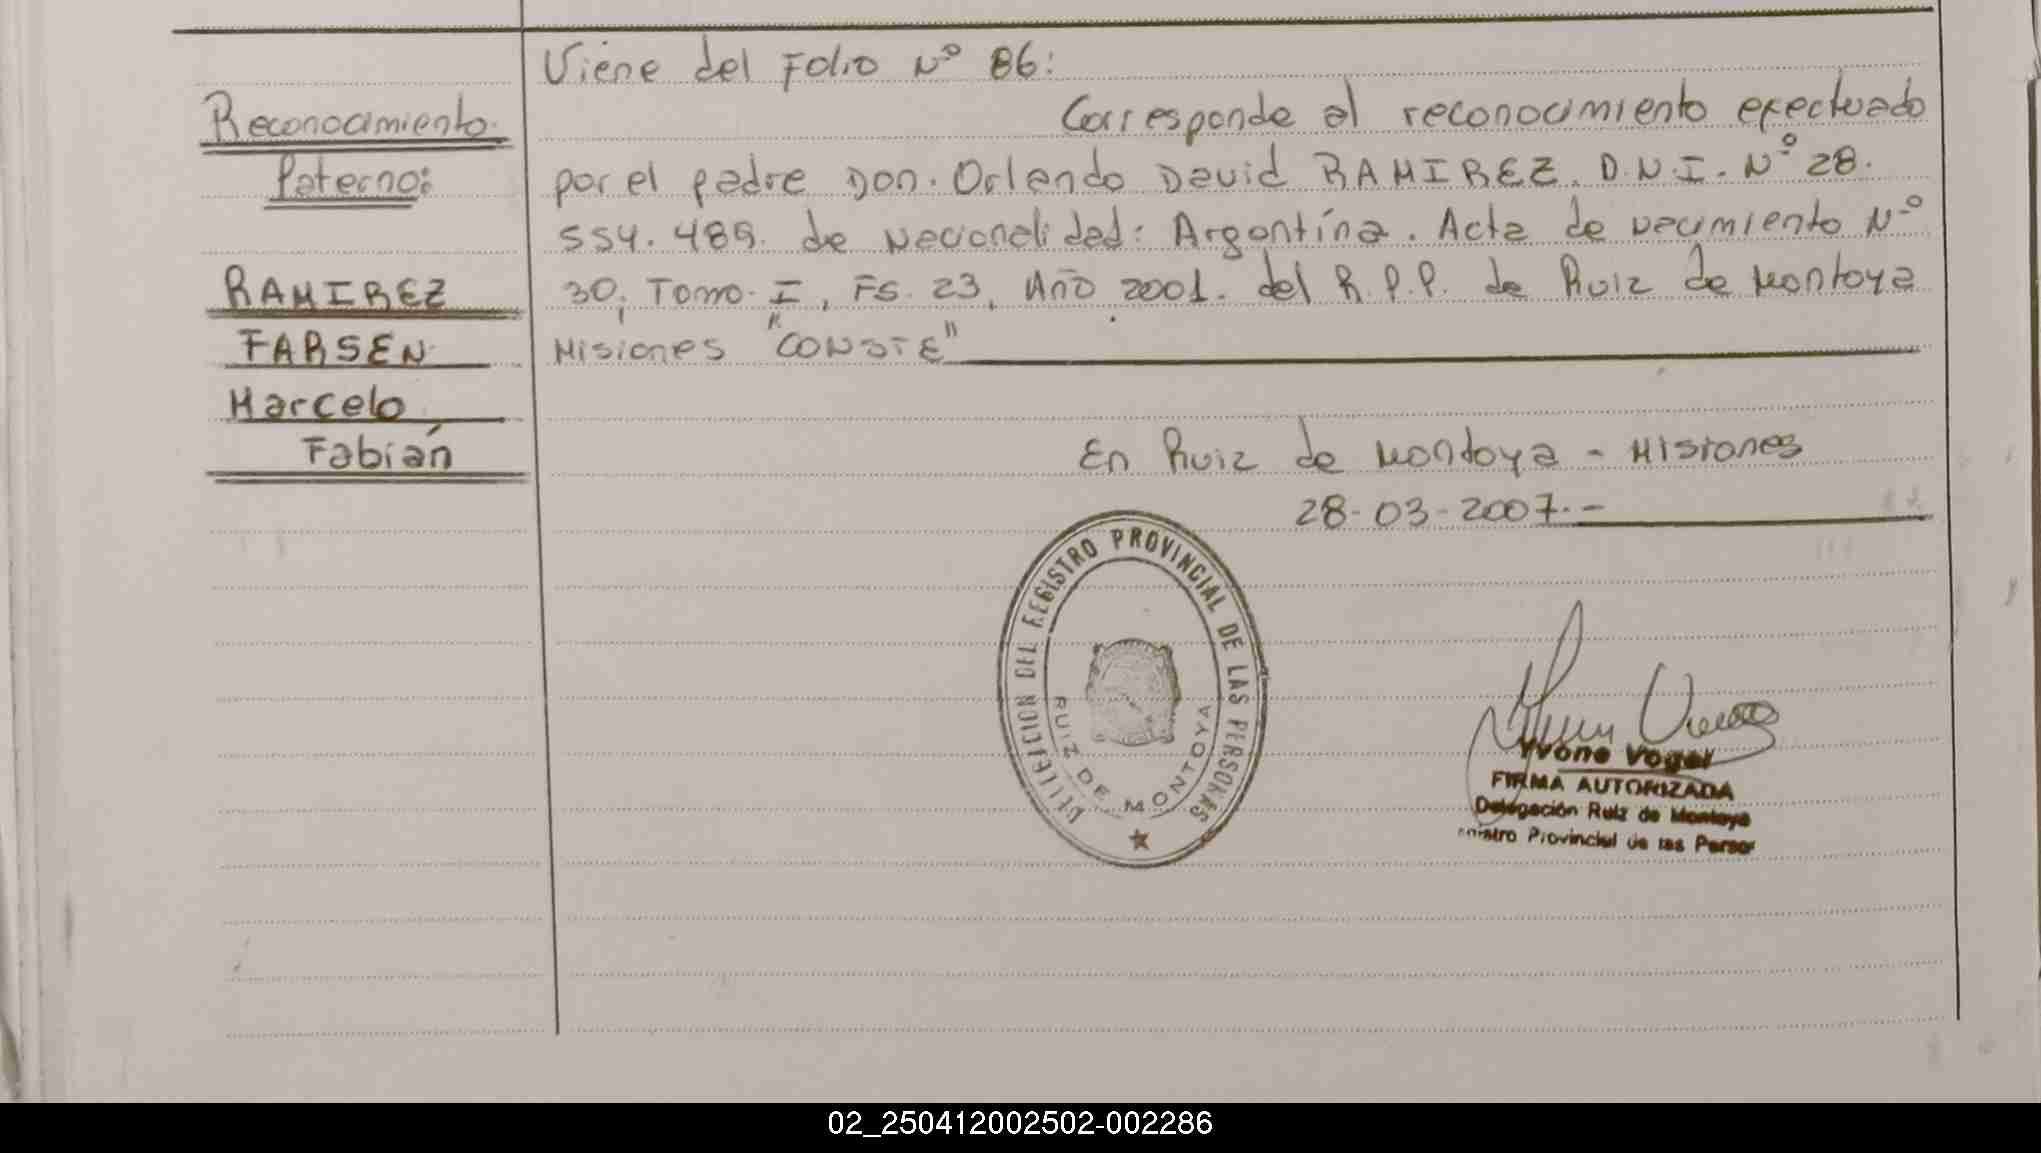 Viene del Folio Nº 86:
Reconocimiento
Paterno:
RAMIREZ
FARSEN
Marcelo
Fabián
Corresponde al reconocimiento efectuado
por el padre Don. Orlando David RAMIREZ. D.N.I. Nº 28.
554.489. de Nacionalidad: Argentína. Acta de nacimiento Nº
30, Tomo I, Fs. 23, Año 2001. del R.P.P. de Ruiz de Montoya
Misiones "CONSTE"
En Ruiz de Montoya - Misiones
28-03-2007.-
DELEGACION DEL REGISTRO PROVINCIAL DE LAS PERSONAS
RUIZ DE MONTOYA
Yvone Vogel
FIRMA AUTORIZADA
Delegación Ruiz de Montoya
Provincial de las
02_250412002502-002286